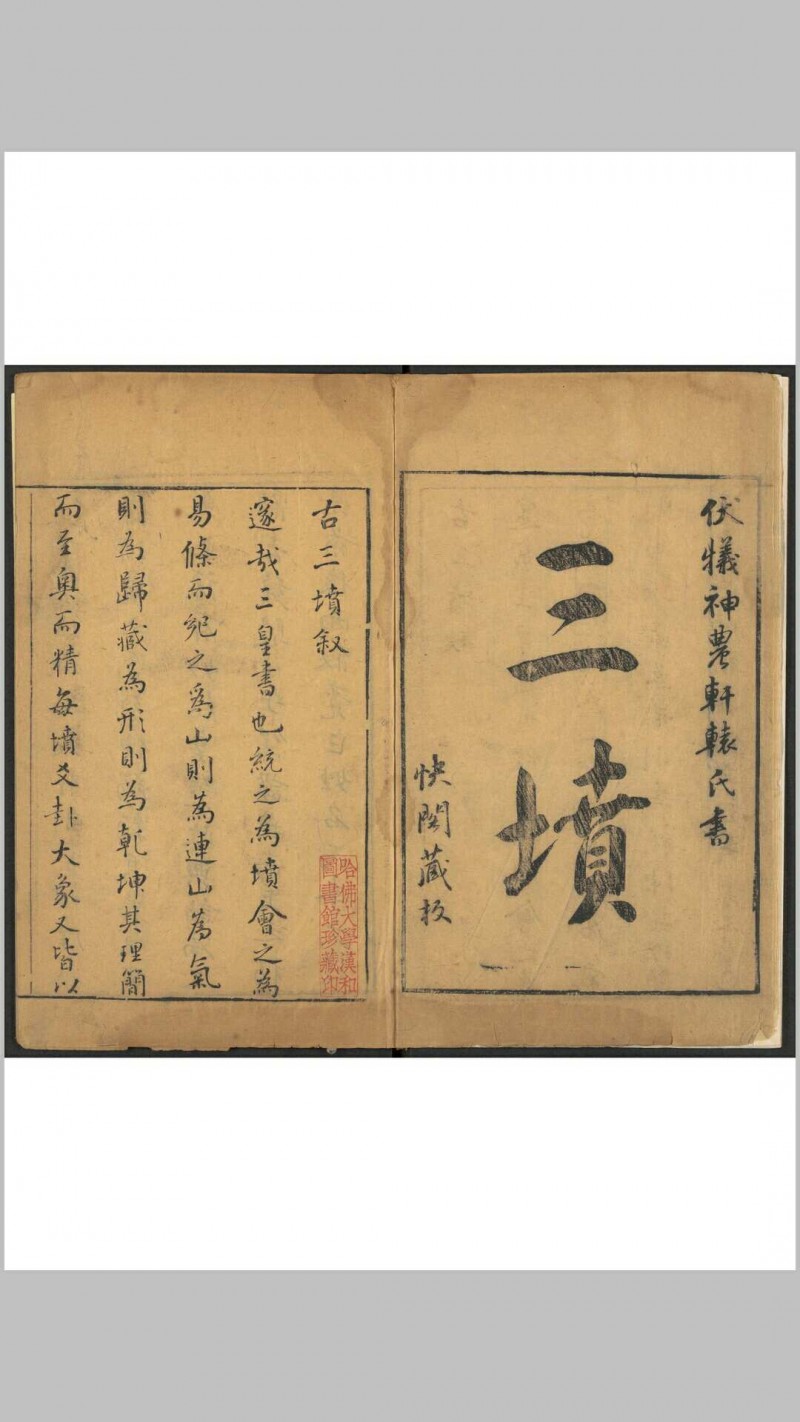 伏犧神農軒轅氏書
三墳
快閣藏板
古三墳叙
邃哉三皇書也統之為墳會之為
易條而紀之為山則為連山為氣
則為歸藏為形則為乾坤其理簡
而至奧而精每墳爻卦大象又皆以
哈佛大學漢和
圖書館珍藏印